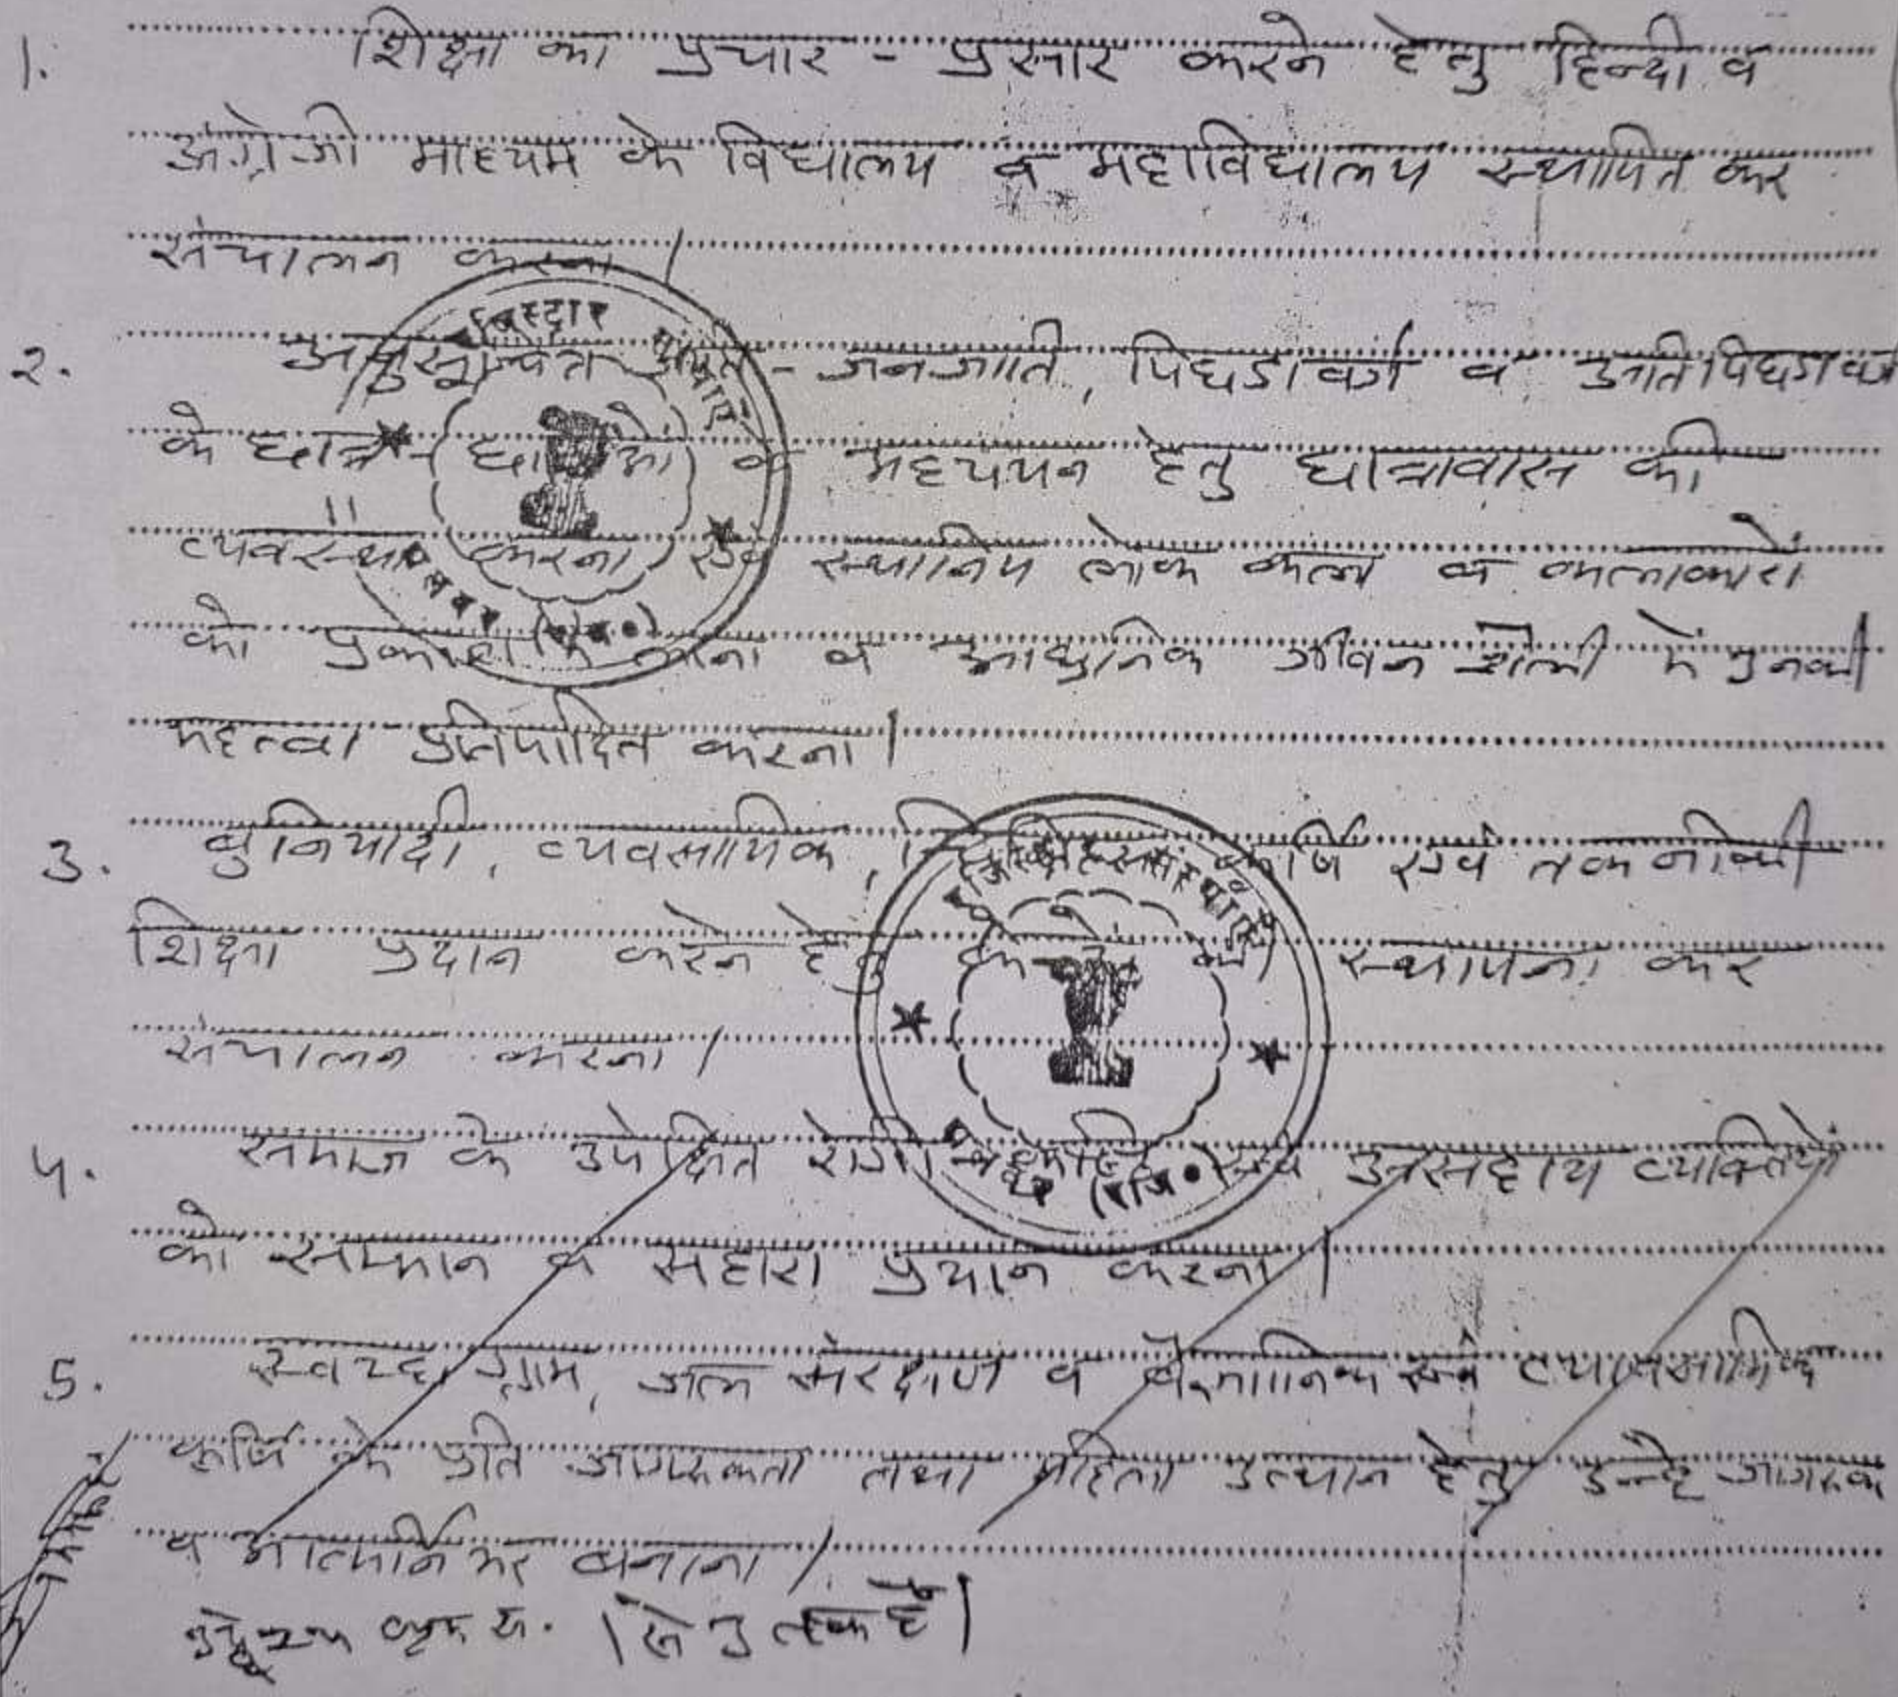 1. शिक्षा का प्रचार - प्रसार करने हेतु हिन्दी व
अंग्रेजी माध्यम के विद्यालय व महाविद्यालय स्थापित कर
संचालन करना।
2. अनुसूचित जाति - जनजाति, पिछडा वर्ग व अति पिछडा वर्ग
के छात्र - छात्राओं के अध्ययन हेतु छात्रावास की
व्यवस्था करना एवं स्थानिय लोक कला व कलाकारों
को लाना व आधुनिक जीवन शैली में उनकी
महत्वा प्रतिपादित करना।
3. बुनियादी, व्यवसायिक, कृर्षि एवं तकनीकी
शिक्षा प्रदान करने हेतु की स्थापना कर
संचालन करना।
4. समाज के उपेक्षित रोगी एवं असहाय व्यक्तियों
को सम्मान व सहारा प्रदान करना।
5. स्वच्छ ग्राम, जल संरक्षण व वैज्ञानिक एवं व्यावसायिक
कृर्षि के प्रति जागरुकता तथा महिला उत्थान हेतु उन्हे जागरुक
व आत्मनिर्भर बनाना।
1 से 5 तक है।